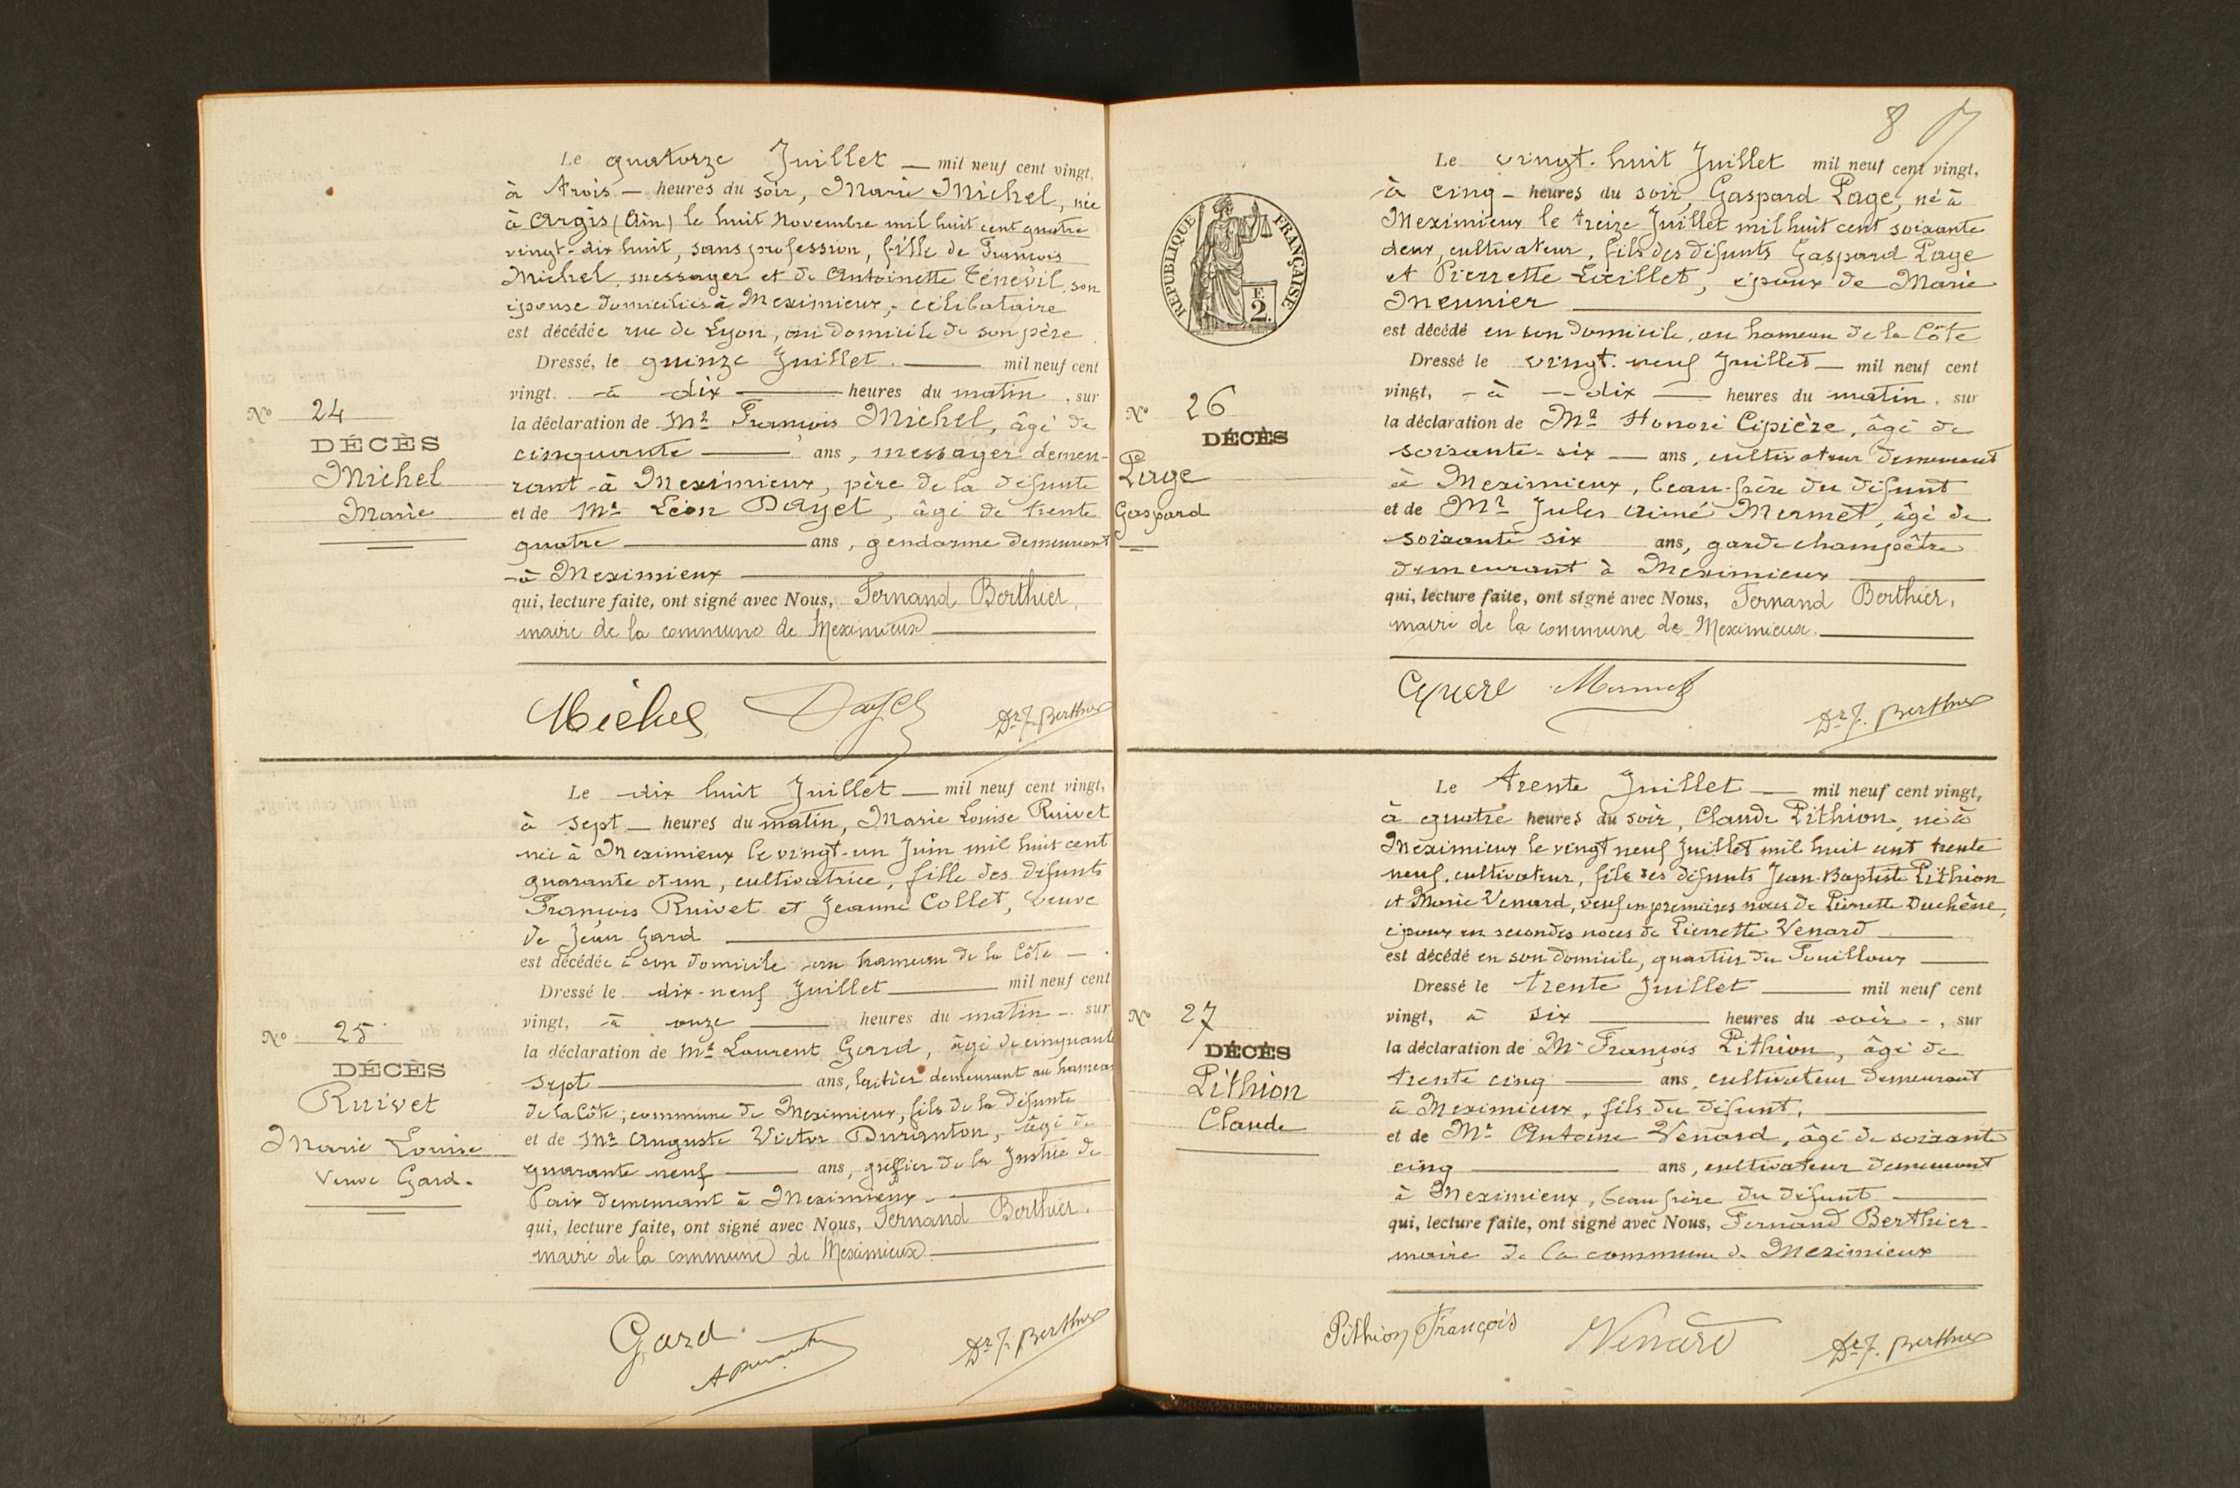 Le quatorze Juillet — mil neuf cent vingt,
à trois — heures du soir, Marie Michel, née
à Argis (Ain) le huit Novembre mil huit cent quatre
vingt-dix huit, sans profession, fille de François
Michel, messager et de Antoinette Ténevil, son
épouse domiciliés à Meximieux, célibataire
est décédée rue de Lyon, au domicile de son père
Dressé, le quinze Juillet — mil neuf cent
vingt. à dix — heures du matin, sur
la déclaration de Mr François Michel, âgé de
cinquante — ans, messager demeu-
rant à Meximieux, père de la défunte
et de Mr Léon Dayet, âgé de trente
quatre — ans, gendarme demeurant
à Meximieux —
qui, lecture faite, ont signé avec Nous, Fernand Berthier,
maire de la commune de Meximieux —
No 24
DÉCÈS
Michel
Marie
Michel Dayet Dr F. Berthier
Le dix huit Juillet — mil neuf cent vingt,
à sept — heures du matin, Marie Louise Ruivet
née à Meximieux le vingt-un Juin mil huit cent
quarante et un, cultivatrice, fille des défunts
François Ruivet et Jeanne Collet, veuve
de Jean Gard —
est décédée à son domicile au hameau de la Côte —.
Dressé le dix-neuf Juillet — mil neuf cent
vingt, à onze — heures du matin —. sur
la déclaration de Mr Laurent Gard, âgé de cinquante
sept — ans, laitier demeurant au hameau
de la Côte, commune de Meximieux, fils de la défunte
et de Mr Auguste Victor Duranton, âgé de
quarante neuf — ans, greffier de la Justice de
Paix demeurant à Meximieux —
qui, lecture faite, ont signé avec Nous, Fernand Berthier.
maire de la commune de Meximieux —
No 25
DÉCÈS
Ruivet
Marie Louise
Veuve Gard.
Gard A Duranton Dr F. Berthier
8
Le vingt-huit Juillet mil neuf cent vingt,
à cinq - heures du soir, Gaspard Page, né à
Meximieux le treize Juillet mil huit cent soixante
deux, cultivateur, fils des défunts Gaspard Page
et Pierrette Lieillet, époux de Marie
Meunier —
est décédé en son domicile, au hameau de la Côte
Dressé le vingt-neuf Juillet — mil neuf cent
vingt, - à — dix — heures du matin, sur
la déclaration de Mr Honoré Cipière, âgé de
soixante-six — ans, cultivateur demeurant
à Meximieux, beau-frère du défunt
et de Mr Jules Aimé Mermet, âgé de
soixante six ans, garde champêtre
demeurant à Meximieux —
qui, lecture faite, ont signé avec Nous, Fernand Berthier,
maire de la commune de Meximieux. —
RÉPUBLIQUE FRANÇAISE
F.
2.
No 26
DÉCÈS
Page
Gaspard
Cipière Mermet Dr F. Berthier
Le trente Juillet — mil neuf cent vingt,
à quatre heures du soir, Claude Pithion, né à
Meximieux le vingt neuf Juillet mil huit cent trente
neuf, cultivateur, fils des défunts Jean-Baptiste Pithion
et Marie Venard, veuf en premières noces de Pierrette Duchêne,
époux en secondes noces de Pierrette Venard —
est décédé en son domicile, quartier du Fouilloux —
Dressé le trente Juillet — mil neuf cent
vingt, à six — heures du soir -, sur
la déclaration de Mr François Pithion, âgé de
trente cinq — ans, cultivateur demeurant
à Meximieux, fils du défunt, —
et de Mr Antoine Venard, âgé de soixante
cinq — ans, cultivateur demeurant
à Meximieux, beau frère du défunt —
qui, lecture faite, ont signé avec Nous, Fernand Berthier
maire de la commune de Meximieux
No 27
DÉCÈS
Pithion
Claude
Pithion François Venard Dr F. Berthier